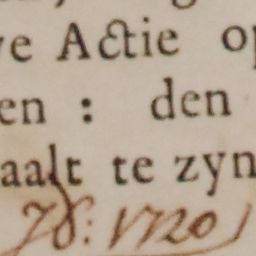 ve Actie op
en : den
aalt te zyn
1720